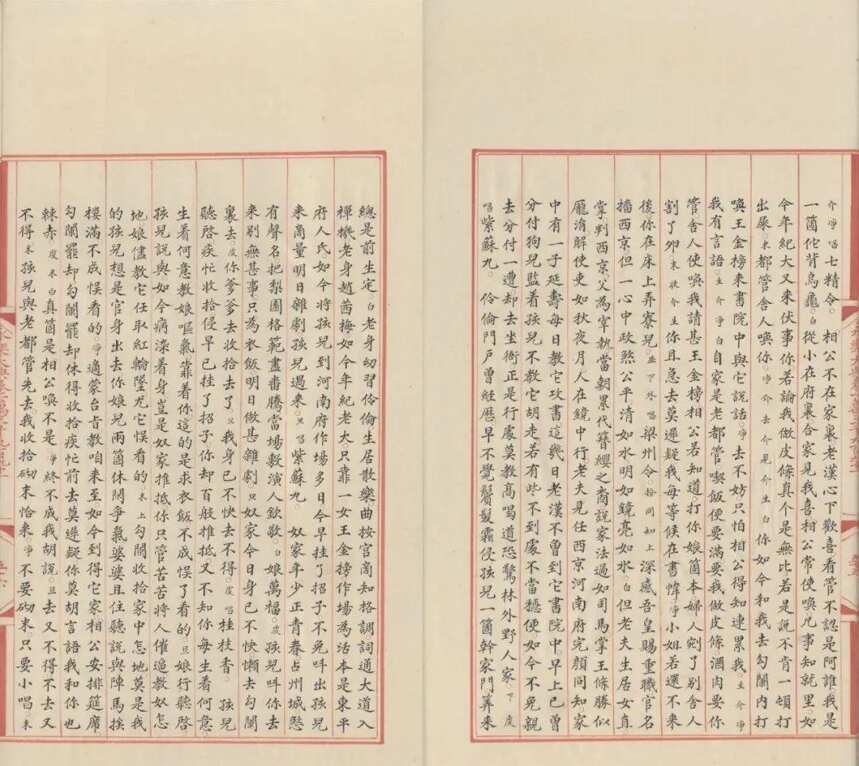 介淨唱七精令。相公不在家裏老漢心下歡喜看管不認是阿誰我是
一箇佗背烏龜。白從小在府裏合家見我喜相公常使喚凡事知就里如
今年紀大又來伏事你若論我做皮條真个是無比若是說不肯一頓打
出屎。末都管舍人喚你。淨介去介見介生白你如今和我去勾闌內打
喚王金榜來書院中與它說話。淨去不妨只怕相公得知連累我。生介淨
我有言語。生介淨白自家是老都管喫飯便要滿要我做皮條酒肉要你
管舍人便喚我請甚王金榜相公若知道。打你娘箇本婦人劍了別舍人
割了卵。末欣介生你且急去莫遲疑我每等候在書幃。淨小姐若還不來
後你在床上弄寮兒。並下外唱梁州令。拾同知上深感吾皇賜重職官名
播西京但一心中政煞公平清如水明如鏡亮如氷。白但老夫生居女直
掌判西京父為宰執當朝累代簪纓之裔說家法過如司馬掌王條勝似
龐涓解使吏如秋夜月人在鏡中行老夫見任西京河南府完顏同知家
中有一子延壽每日教它攻書這幾日老漢不曾到它書院中早上已曾
分付狗兒監着孩兒不教它胡走若有些不到處不當穩便如今不免親
去分付一遭却去坐衙正是行處莫教高唱道恐驚林外野人家。下虔
唱紫蘇丸。伶倫門戶曾經歷早不覺鬢髮霜侵孩兒一箇幹家門筭來
總是前生定。白老身幼習伶倫生居散樂曲按宮商知格調詞通大道入
禪機老身趙茜梅如今年紀老大只靠一女王金榜作場為活本是東平
府人氏如今將孩兒到河南府作場多日今早挂了招子不免叫出孩兒
來商量明日雜劇孩兒過來。旦唱紫蘇丸。奴家年少正青春占州城煞
有聲名把梨園格範盡番騰當場敷演人欽敬。白娘萬福。虔孩兒叫你去
來別無甚事只為衣飯明日做甚雜劇。旦奴家今日身已不快懶去勾闌
裏去。虔你爹爹去收拾去了。旦我身已不快去不得。虔唱桂枝香。孩兒
聽啓疾忙收拾侵早已挂了招子你却百般推抵又不知每生着何意
生着何意教娘嘔氣靠着你這的是求衣飯不成悞了看的。旦娘行聽啓
孩兒說與如今病染着身豈是奴家推抵你只管苦苦將人催逼教奴怎
地娘儘教它任取紅輪墜兀它悞看的。末上勾闌收拾家中怎地莫是我
的孩兒想是官身出去你娘兒兩箇休鬧爭氣婆婆且住聽說與陣馬挨
樓滿不成悞看的。淨適蒙台旨教咱來至如今到得它家相公安排筵席
勾闌罷却勾闌罷却休得收拾疾忙前去莫遲疑你莫胡言語我和你也
棘赤。虔末白真箇是相公喚不是。淨終不成我胡說。旦去又不得不去又
不得。末孩兒與老都管先去我收拾砌末恰來。淨不要砌末只要小唱。末